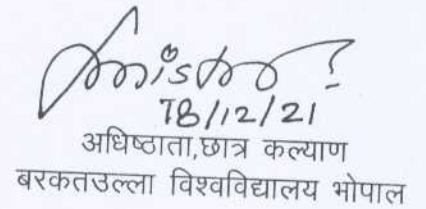 18/12/21
अधिष्ठाता,छात्र कल्याण
बरकतउल्ला विश्वविद्यालय भोपाल